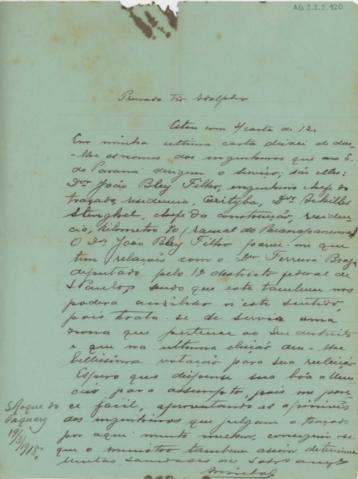 AG 2.2.2.120
Presado Tio Adolpho
Estou com s/carta de 12.
Em minha ultima carta deixei de dar-
lhe os nomes dos engenheiros que no E.
do Paraná dirigem o serviço, são elles:
Drs. João Bley Filho, engenheiro chefe do
traçado, residencia, Corityba, Drs. Achilles
Stenghel, chefe da construcção, residen-
cia, kilometro 80 (ramal do Paranapanema)
O Dr. João Bley Filho parece-me que
tem relação com o Dr. Ferreira Braga
deputado pelo 1º destricto federal de
S. Paulo, sendo que este tambem nos
poderá auxiliar n'este sentido,
pois trata-se de servir uma
zona que pertence ao seu destricto
e que na ultima eleição deu-lhe
bellissima votação para sua reeleição
Espero que dispense sua bôa atten-
ção para o assumpto, pois me pare-
ce facil, aproveitando as opiniões
dos engenheiros que julgam o traçado
por aqui muito melhor, conseguir-se
que o ministro tambem assim determine
Muitas saudades do sobro amgo
S. Roque do
19/3/918